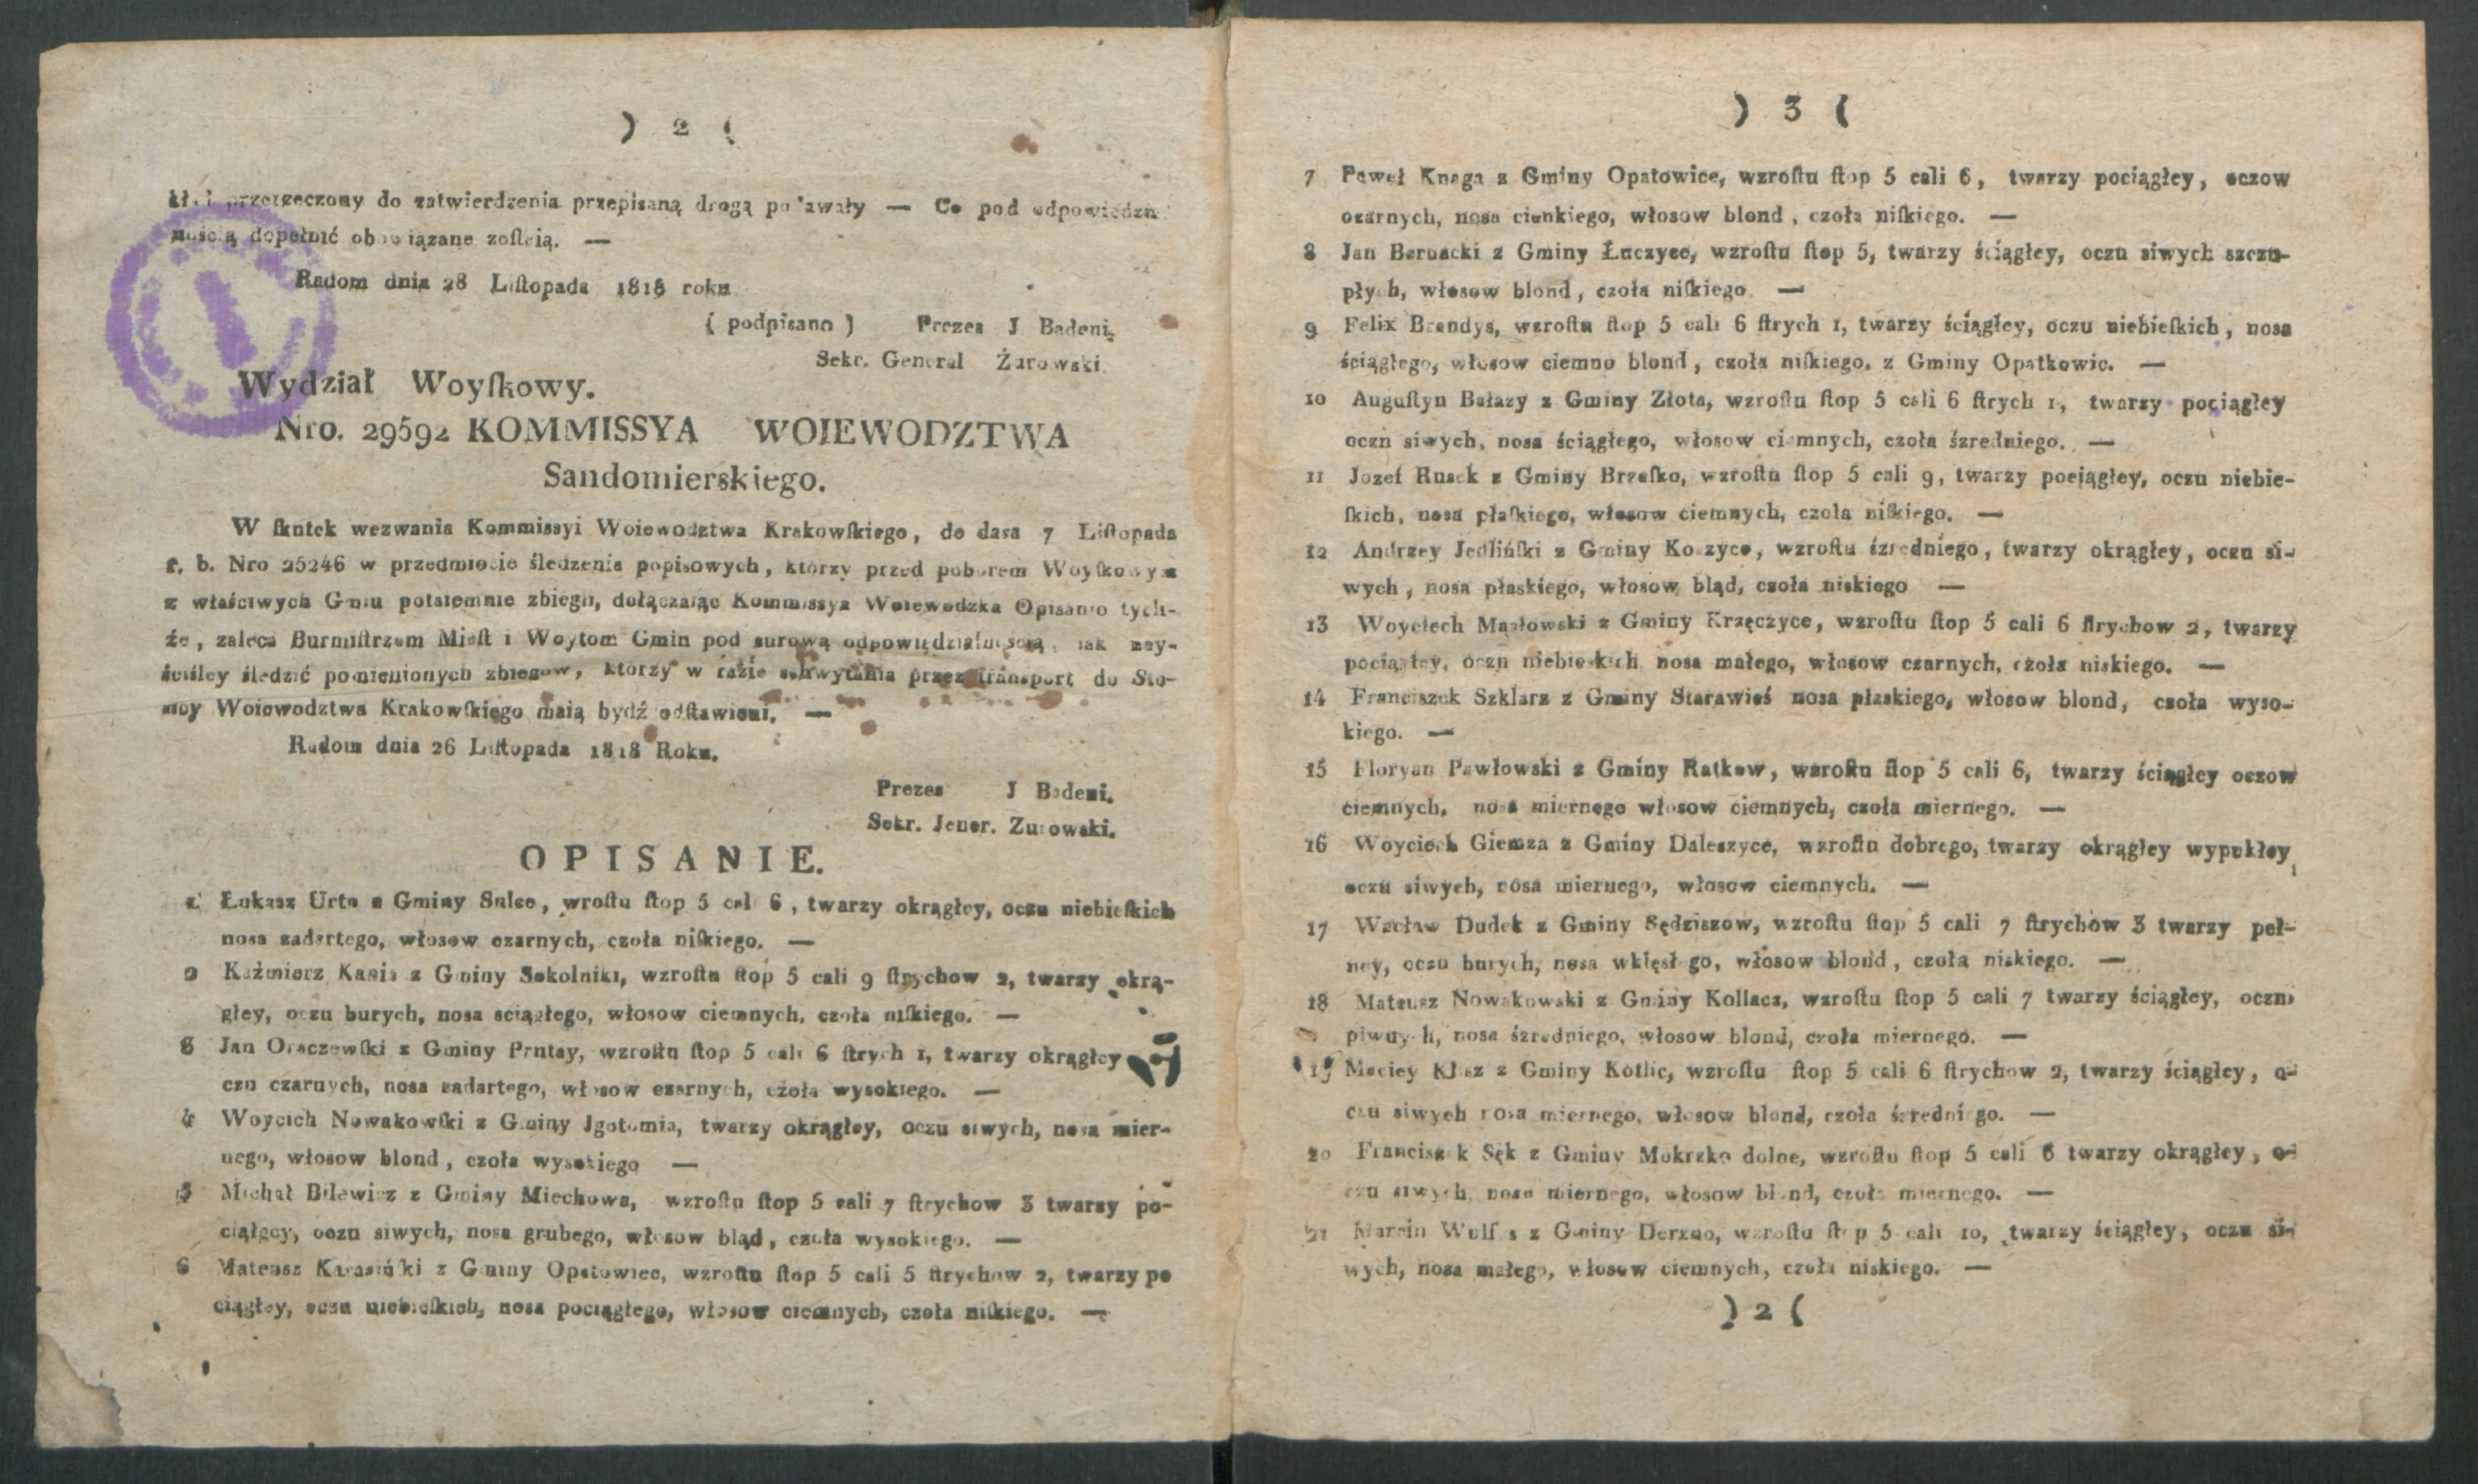 ) 2 (
przerzeczony do zatwierdzenia przepisaną drogą podawały — Co pod odpowiedzn
nością dopełnić obowiązane zoſtaią. —
Radom dnia 28 Liſtopada 1818 roku
( podpisano ) Prezes J Badeni,
Sekr. General Żurowski.
Wydział Woyſkowy.
Nro. 29592 KOMMISSYA WOIEWODZTWA
Sandomierskiego.
W ſkutek wezwania Kommissyi Woiewodztwa Krakowſkiego, de data 7 Liſtopada
r. b. Nro 25246 w przedmiocie śledzenia popisowych, ktorzy przed poborem Woyſkowym
z właściwych Gmin potaiemnie zbiegli, dołączaiąc Kommissya Woiewodzka Opisanio tych-
że, zaleca Burmiſtrzom Miaſt i Woytom Gmin pod surową odpowiędzialnością, iak nay-
ściśley śledzić pomienionych zbiegow, ktorzy w razie schwytania przez transport do Sto-
licy Woiewodztwa Krakowſkiego maią bydź odſtawieni. —
Radom dnia 26 Liſtopada 1818 Roku.
Prezes J Badeni.
Sekr. Jener. Zurowski.
OPISANIE.
1. Łukasz Urta z Gminy Sulee, wroſtu ſtop 5 cal 6, twarzy okrągłey, oczu niebieſkich
nosa zadartego, włosow czarnych, czoła niſkiego. —
2 Kaźmierz Kania z Gminy Sokolniki, wzroſtu ſtop 5 cali 9 ſtrychow 2, twarzy okrą-
głey, oczu burych, nosa sciągłego, włosow ciemnych, czoła niſkiego. —
3 Jan Oraczewſki z Gminy Prutsy, wzroſtu ſtop 5 cali 6 ſtrych 1, twarzy okrągłey
czu czarnych, nosa zadartego, włosow czarnych, czoła wysokiego. —
4 Woycich Nowakowſki z Gminy Jgołomia, twarzy okrągłey, oczu siwych, nosa mier-
nego, włosow blond, czoła wysokiego —
5 Michał Bilewicz z Gminy Miechowa, wzroſtu ſtop 5 cali 7 ſtrychow 3 twarzy po-
ciąłgey, oozu siwych, nosa grubego, włosow bląd, czoła wysokiego. —
6 Mateusz Karasińſki z Gminy Opatowiec, wzroſtu ſtop 5 cali 5 ſtrychow 2, twarzy po
ciągłey, oczu niebieſkich, nosa pociągłego, włosow ciemnych, czoła niſkiego. —
) 3 (
7 Paweł Knaga z Gminy Opatowice, wzroſtu ſtop 5 cali 6, twarzy pociągłey, oczow
czarnych, nosa cienkiego, włosow blond, czoła niſkiego. —
8 Jan Bernacki z Gminy Łuczyce, wzroſtu ſtop 5, twarzy ściągłey, oczu siwych szczu-
płych, włosow blond, czoła niſkiego —
9 Felix Brandys, wzroſtu ſtop 5 cali 6 ſtrych 1, twarzy ściągłey, oczu niebieſkich, nosa
ściągłego, włosow ciemno blond, czoła niſkiego, z Gminy Opatkowic. —
10 Auguſtyn Bałazy z Gminy Złota, wzroſtu ſtop 5 cali 6 ſtrych 1, twarzy pociągłey
oczn siwych, nosa ściągłego, włosow ciemnych, czoła śzredniego. —
11 Jozef Rusek z Gminy Brzeſko, wzroſtu ſtop 5 cali 9, twarzy pociągłey, oczu niebie-
ſkich, nosa płaſkiego, włosow ciemnych, czoła niſkiego. —
12 Andrzey Jedlińſki z Gminy Koszyce, wzroſtu śzredniego, twarzy okrągłey, oczu si-
wych, nosa płaskiego, włosow bląd, czoła niskiego —
13 Woyciech Masłowski z Gminy Krzęczyce, wzroſtu ſtop 5 cali 6 ſtrychow 2, twarzy
pociągłey, oczn niebieskich nosa małego, włosow czarnych, czoła niskiego. —
14 Franciszek Szklarz z Gminy Starawieś nosa płaskiego, włosow blond, czoła wyso-
kiego. —
15 Floryan Pawłowski z Gminy Ratkow, wzroſtu ſtop 5 cali 6, twarzy ściągłey oczow
ciemnych, nosa miernego włosow ciemnych, czoła miernego. —
16 Woyciech Giemza z Gminy Daleszyce, wzroſtu dobrego, twarzy okrągłey wypukłey,
oczu siwych, nosa miernego, włosow ciemnych. —
17 Wacław Dudek z Gminy Sędziszow, wzroſtu ſtop 5 cali 7 ſtrychow 3 twarzy peł-
ney, oczu burych, nosa wklęsłego, włosow blond, czoła niskiego. —
18 Mateusz Nowakowski z Gminy Kollacz, wzroſtu ſtop 5 cali 7 twarzy ściągłey, oczn
piwnych, nosa śzredniego, włosow blond, czoła miernego. —
19 Maciey Klisz z Gminy Kotlic, wzroſtu ſtop 5 cali 6 ſtrychow 2, twarzy ściągłey, o-
czu siwych nosa miernego, włosow blond, czoła śzredniego. —
20 Franciszek Sęk z Gminy Mokrzko dolne, wzroſtu ſtop 5 cali 6 twarzy okrągłey, o-
czu siwych, nosa miernego, włosow blond, czoła miernego. —
21 Marcin z Gminy wzroſtu ſtop 5 cali 10, twarzy ściągłey, oczu si-
wych, nosa małego, włosow ciemnych, czoła niskiego. —
) 2 (